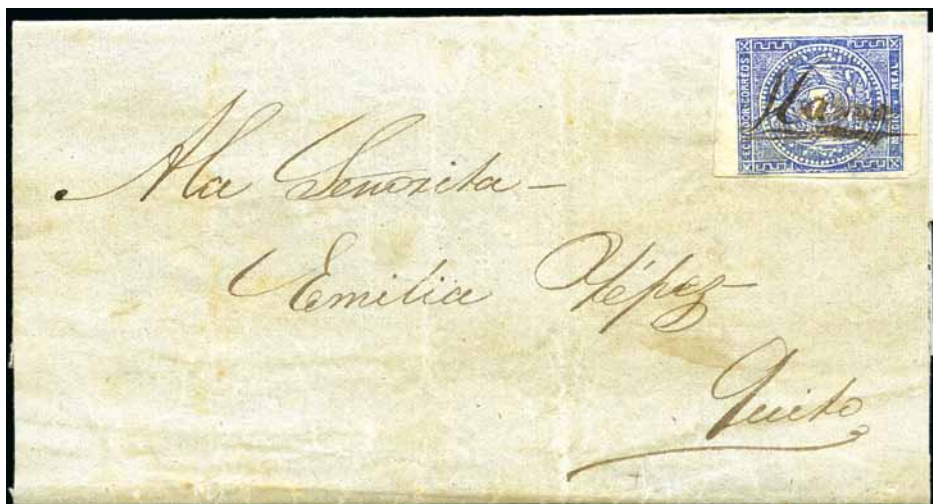 ECUADOR CORREOS
REAL
A la Señorita -
Emilia Yépez
Quito